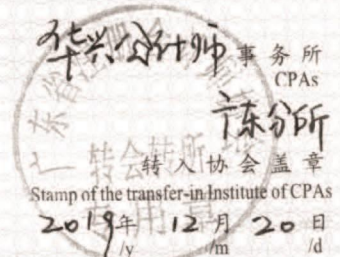 华兴会计师 事务所
CPAs
广东分所
转入协会盖章
Stamp of the transfer-in Institute of CPAs
2019年 12月 20日
/y /m /d